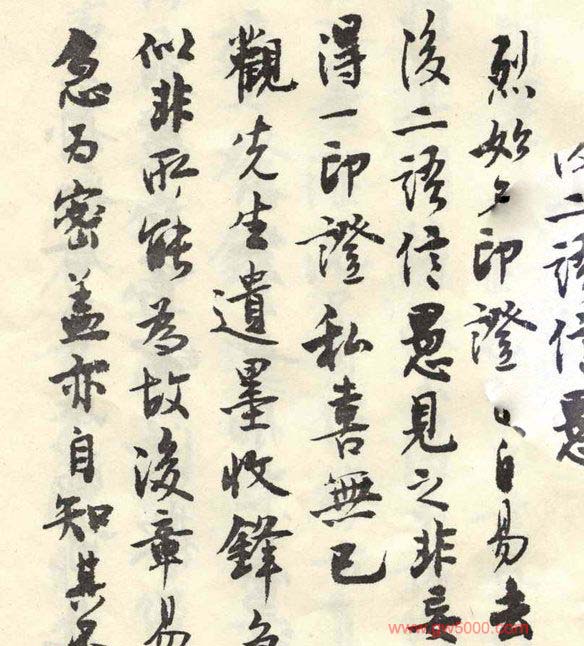 二語信愚
烈始印證自易去
後二語信愚見之非妄
得一印證私喜無已
觀先生遺墨收鋒
似非所能為故後章易
急为密盖亦自知其
www.gw5000.com